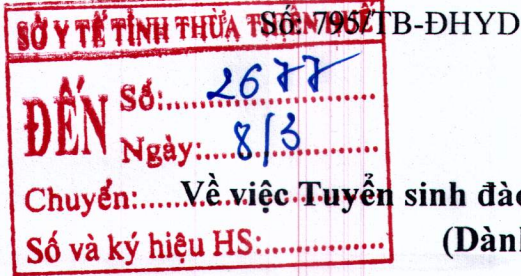 SỞ Y TẾ TỈNH THỪA THIÊN HUẾ
Số: 795/TB-ĐHYD
ĐẾN Số:.....2677.....
Ngày:....8/3.....
Chuyển:.....
Về việc Tuyển sinh đào
Số và ký hiệu HS:.....
(Dành